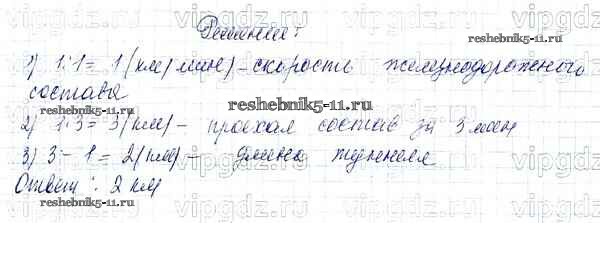 Решение:
1) 1:1=1(км/мин) – скорость железнодорожного
состава
reshebnik5-11.ru
2) 1·3=3(км) – проехал состав за 3 мин
3) 3-1=2(км) – длина туннеля
Ответ: 2 км
reshebnik5-11.ru
reshebnik5-11.ru
vipgdz.ru vipgdz.ru vipgdz.ru